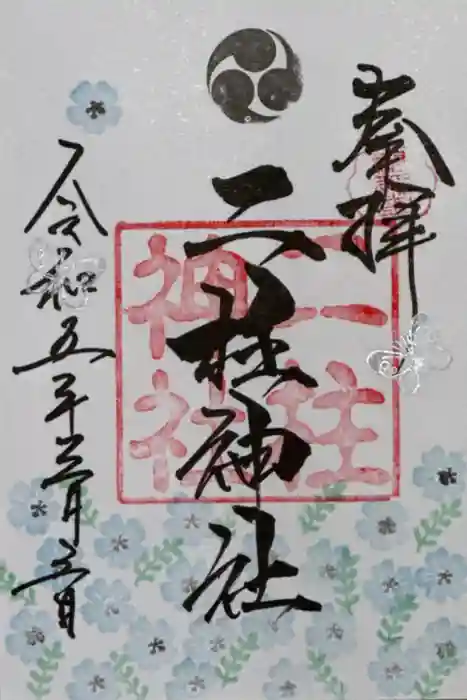 奉拝
二柱神社
二柱神社
令和五年 月 日